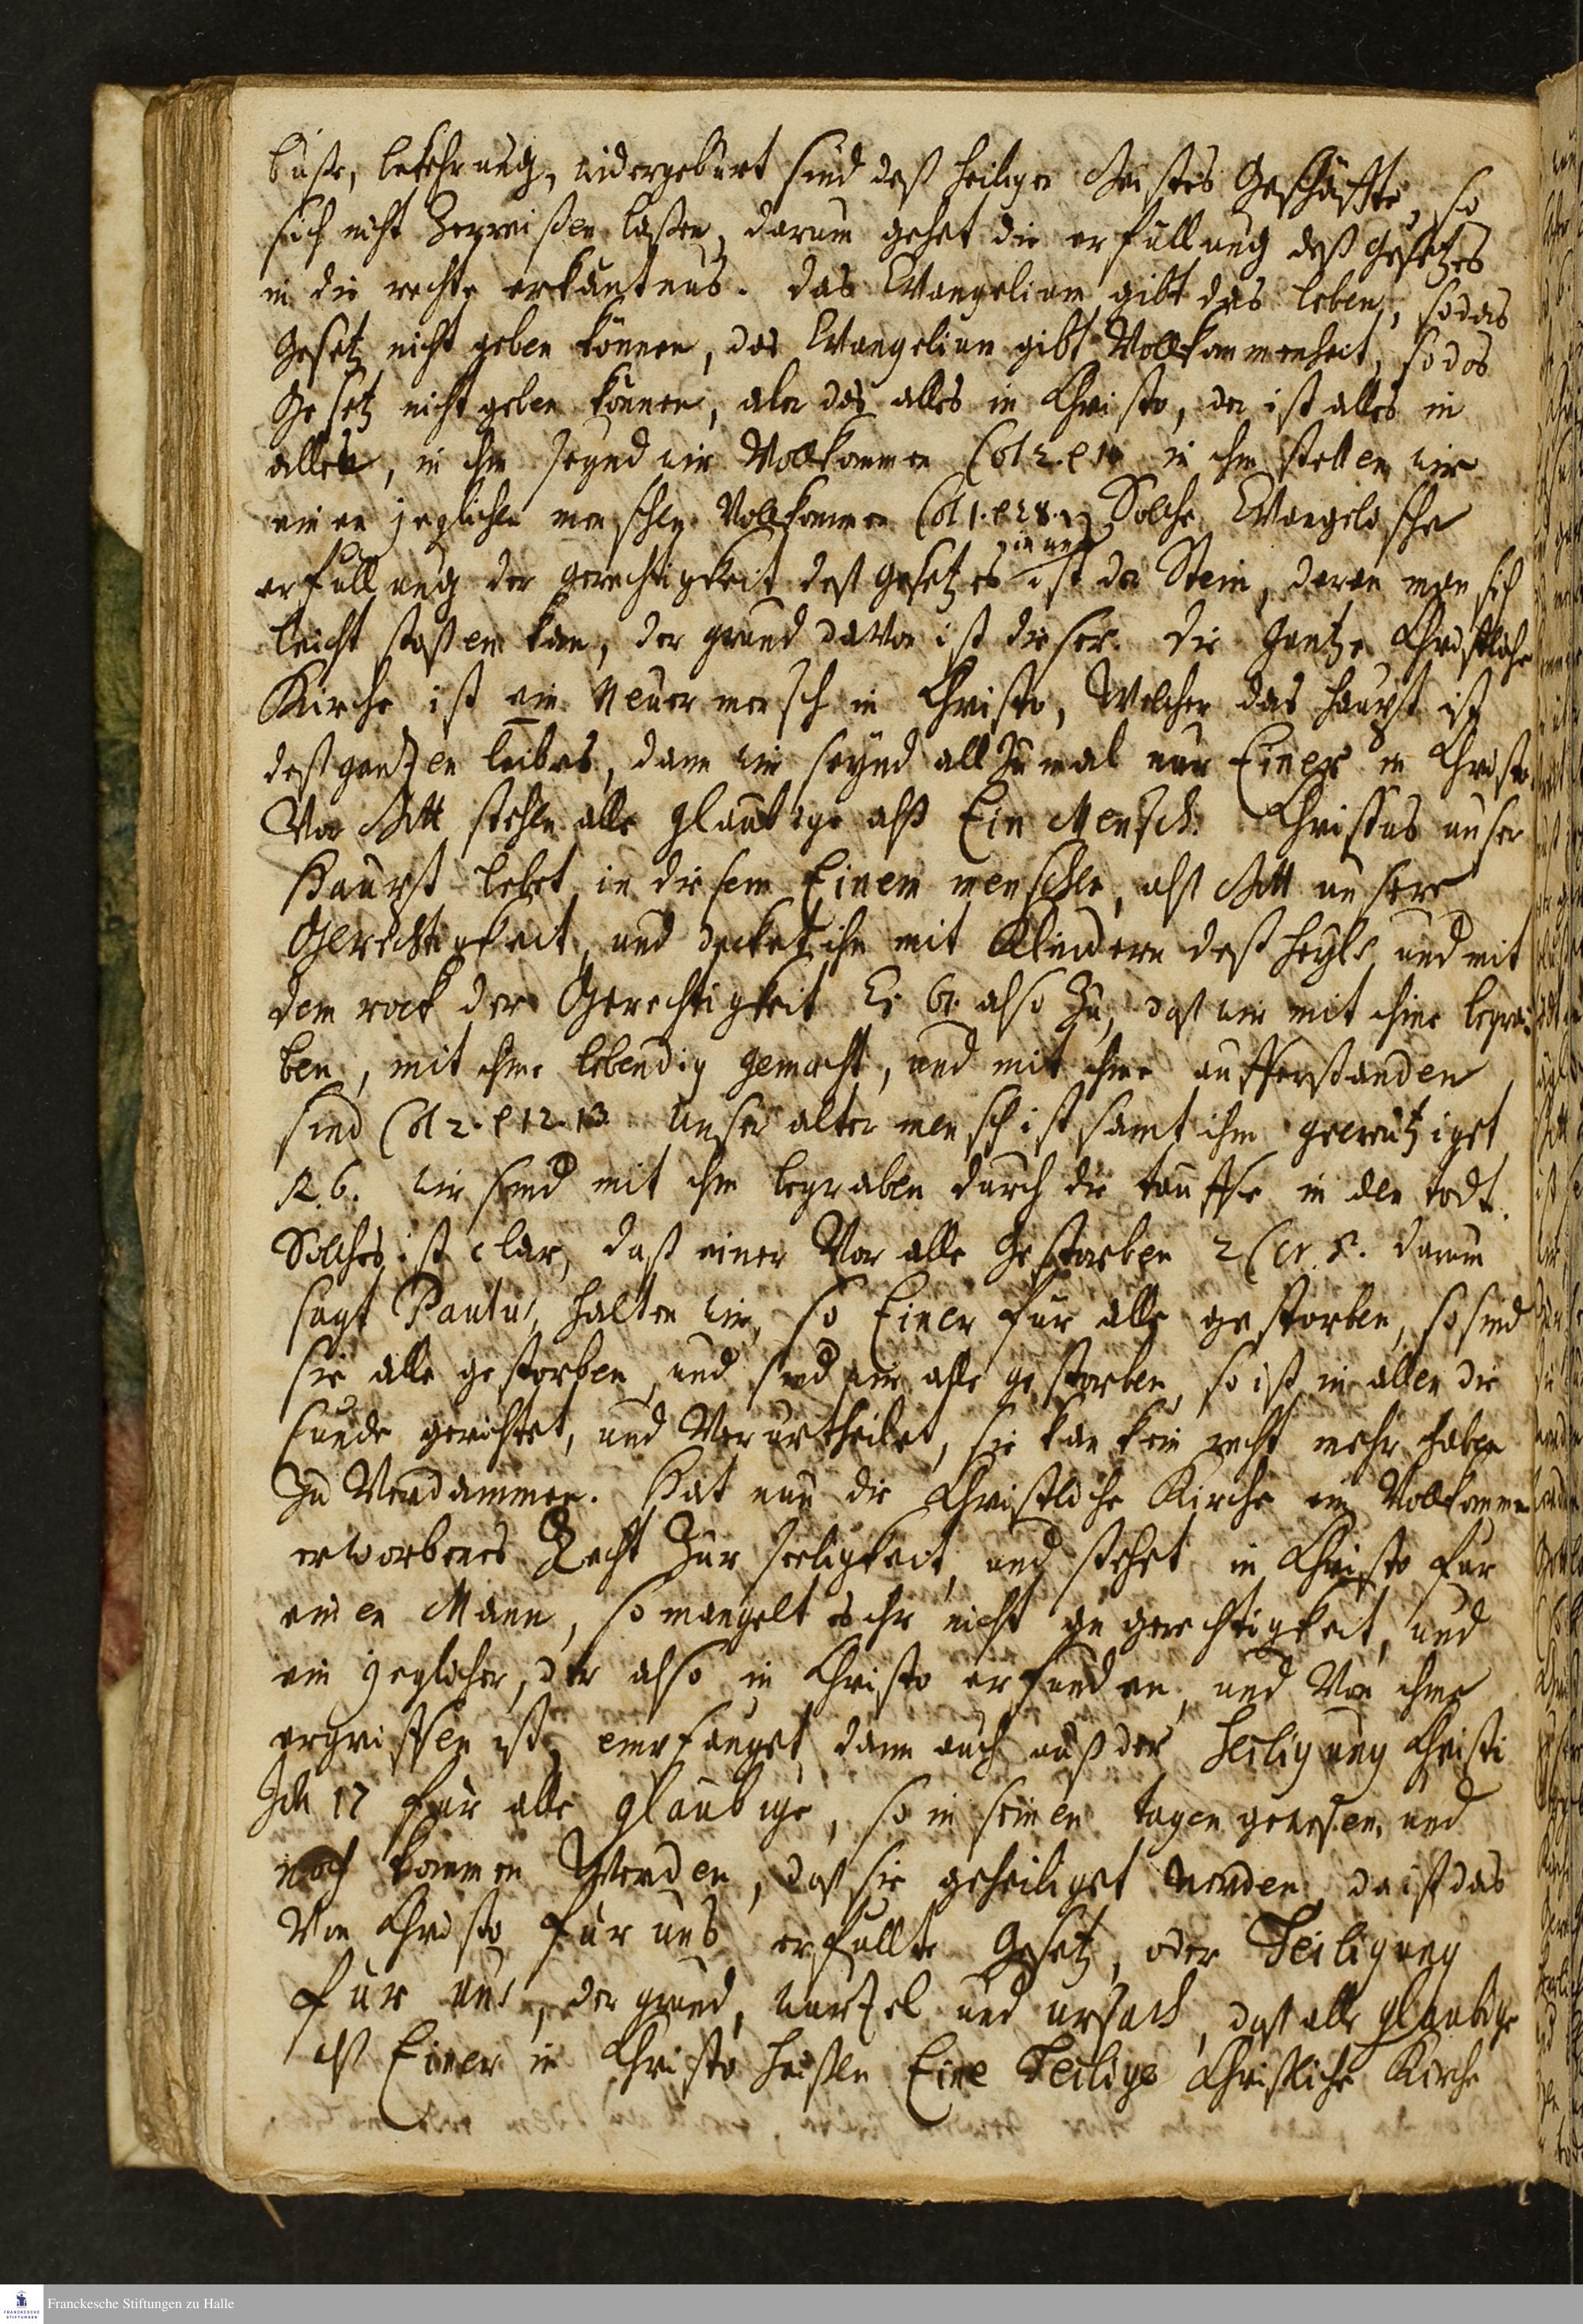 buße, bekehrung, widergeburt sind deß heiligen Geistes Geschäffte, so
sich nicht Zerreißen laßen, darum gehet die erfüllung deß Gesetzes
in die rechte erkäntnus. das Evangelium gibt das leben, so das
Gesetz nicht geben können, das Evangelium gibt Vollkommenheit, so das
Gesetz nicht geben können, aber das alles in Christo, der ist alles in
allen, in ihm seynd wir Vollkommen Col 2. v 10 in ihm stellen wir
einen jeglichen menschen Vollkommen Col 1. v 28. Solche Evangelische
erfüllung der gerechtigkeit deß Gesetzes in uns ist der Stein, daran man sich
leicht stoßen kan, der grund davon ist dieser. die gantze Christliche
Kirche ist ein Neuer mensch in Christo, Welcher das haupt ist
deß gantzen leibes, dann wir seynd allzumal nur Einer in Christo
Vor Gott stehen alle glaubige alß Ein Mensch. Christus unser
Haupt lebet in diesem Einem menschen, alß Gott unsere
Gerechtigkeit, und decket ihn mit Kleidern deß heyls, und mit
dem rock der Gerechtigkeit Es 61. also Zu, daß wir mit ihme begra-
ben, mit ihme lebendig gemacht, und mit ihme aufferstanden
sind Col 2. v 12. 13 Unser alter mensch ist samt ihm gecreutziget
R. 6. wir sind mit ihm begraben durch die tauffe in den todt.
Solches ist clar, daß einer Vor alle Gestorben 2 Cor. 5. darum
sagt Paulus, halten wir, so Einer für alle gestorben, so sind
sie alle gestorben, und sind wir alle gestorben, so ist in allen die
sünde gerichtet, und Verurtheilet, sie kan kein recht mehr haben
Zu Verdammen. Hat nun die Christliche Kirche ein Vollkommen
erworbenes Recht Zur seeligkeit, und stehet in Christo für
einen Mann, so mangelt es ihr nicht an gerechtigkeit, und
ein jeglicher, der also in Christo erfunden, und Von ihme
ergriffen ist, empfanget dann auch auß der Heiligung Christi
Joh 17 für alle glaubige, so in seinen tagen gewesen, und
noch kommen Werden, daß sie geheiliget werden, da ist das
Von Christo für uns erfüllte Gesetz, oder Heiligung
für uns, der grund, wurzel und ursach, daß alle glaubige
alß Einer in Christo heißen Eine Heilige Christliche Kirche
Franckesche Stiftungen zu Halle